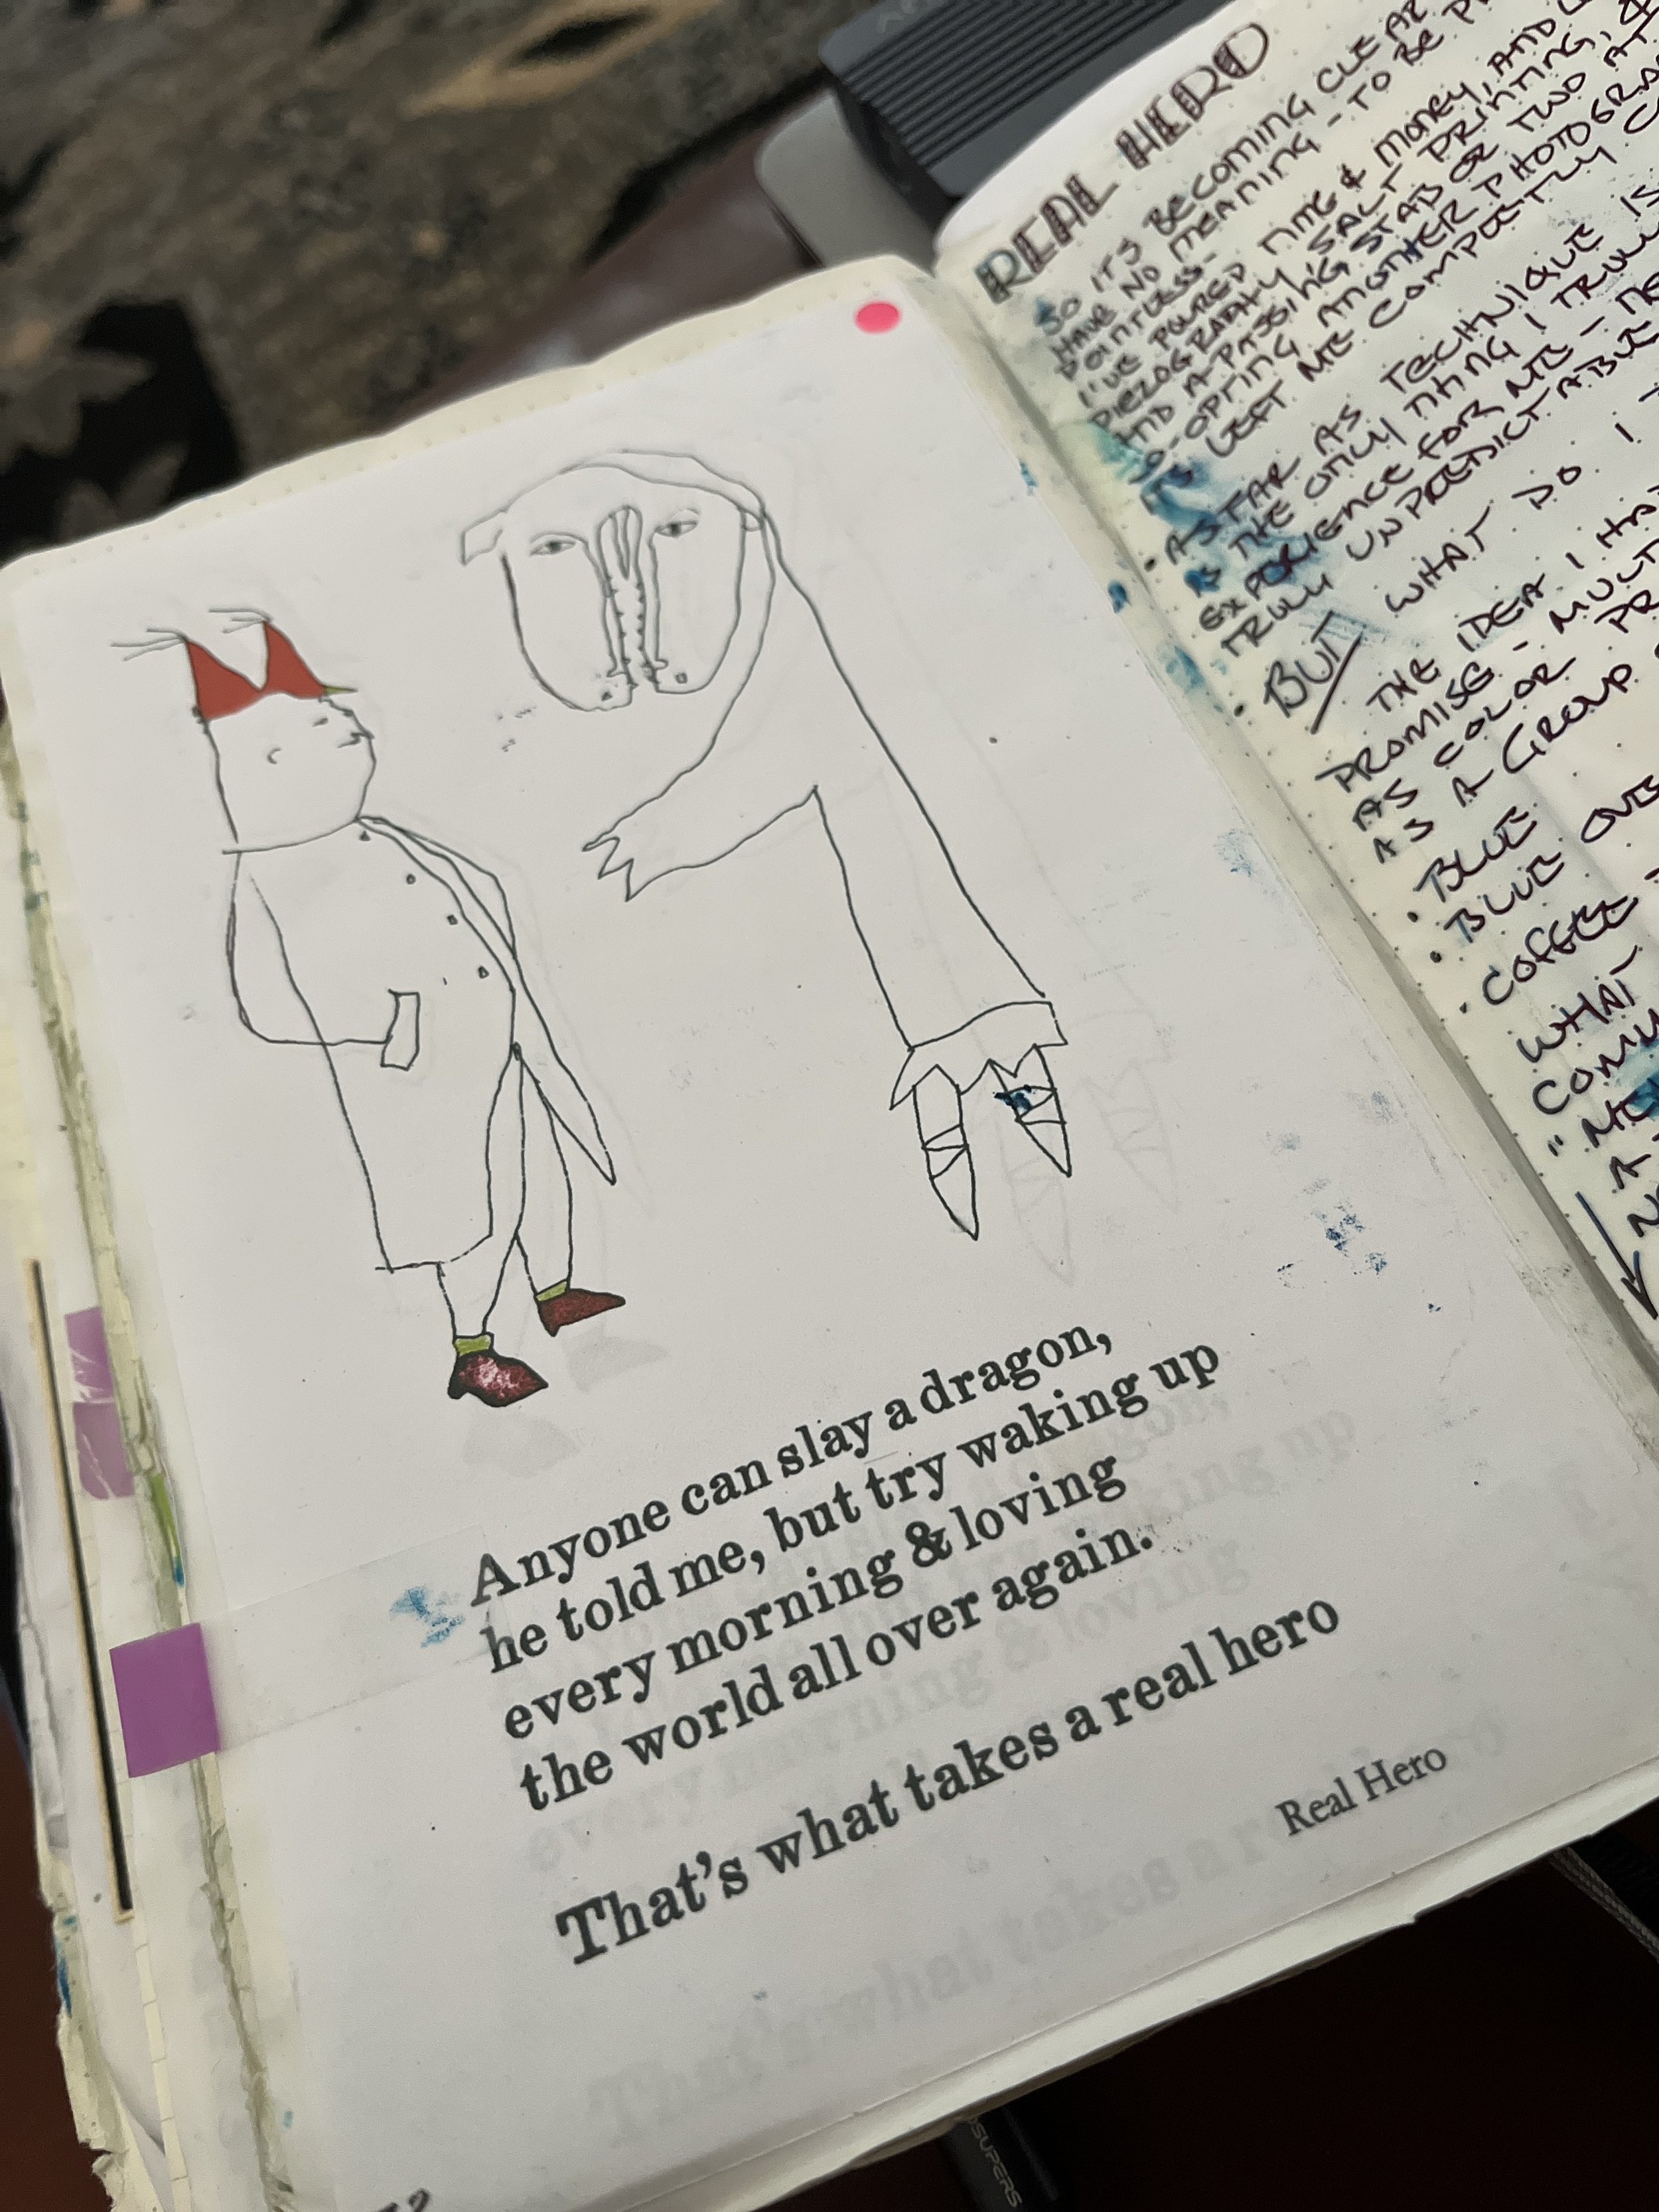 Anyone can slay a dragon,
he told me, but try waking up
every morning & loving
the world all over again.
That's what takes a real hero
Real Hero
REAL HERO
SO IT'S BECOMING CLEAR
HAVE NO MEANING - TO BE
POINTLESS-
I'VE POURED TIME & MONEY, AND
PIEZOGRAPHY, SALT PRINTING,
AND A PASSING STAB OR TWO AT
CO-OPTING ANOTHER PHOTOGRA
ITS LEFT ME COMPLETLY
• AS FAR AS TECHNIQUE IS
IS THE ONLY THING I TRULY
EXPERIENCE FOR ME - 
TRULY UNPREDICTABLE
• BUT WHAT DO I
THE IDEA I HAD
PROMISE - MULT
AS COLOR PR
AS A GROUP
• BLUE
• BLUE OVER
• COFFEE
WHAT
COMM
"ME
A
SUPERS